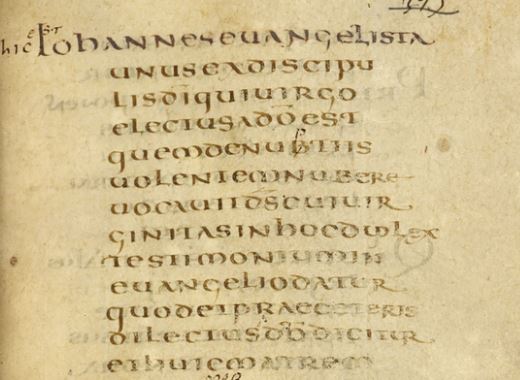 hic est Iohannes euangelista
unus ex discipu
lis dī qui uirgo
electus a dō est
quem de nubtiis
uolentem nubere
uocauit d̄s cui uir
ginitas in hoc duplex
testimonium in
euangelio datur
quod et prae ceteris
dilectus dō dicitur
et huic matrem